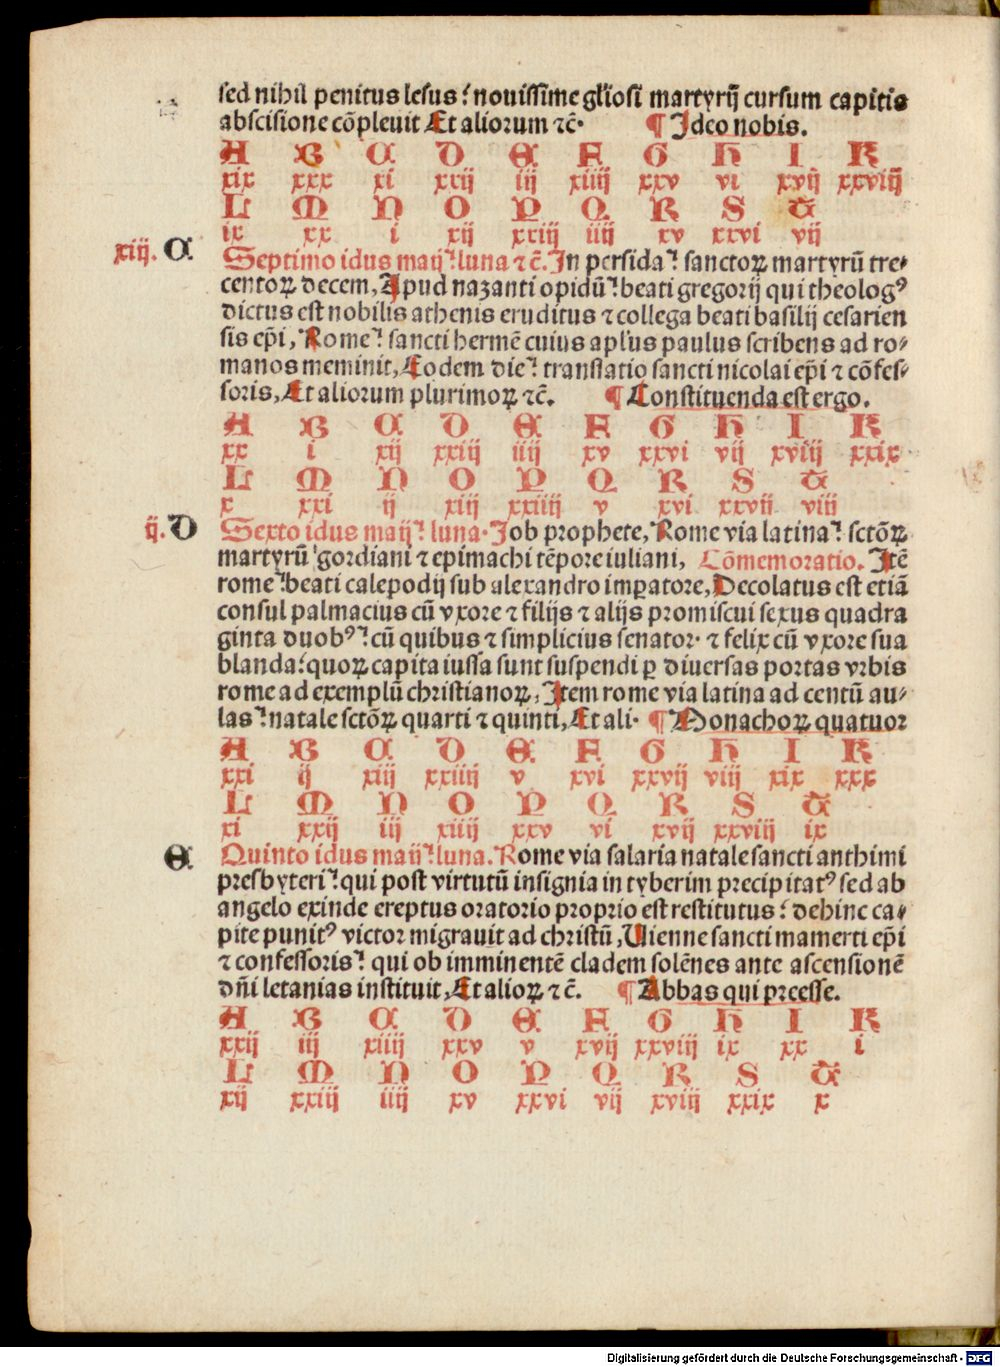 sed nihil penitus lesus: nouissime gl'iosi martyrij cursum capitis
abscisione cōpleuit Et aliorum ⁊c̄. ¶ Ideo nobis.
A B C D E F G H I K
xix xxx xi xxij iij xiiij xxv vi xvij xxviij
L M N O P Q R S T
ix xx i xij xxiij iiij xv xxvi vij
xiij. C Septimo idus maij: luna ⁊c̄. In persida: sanctoꝝ martyrū tre-
centoꝝ decem, Apud nazanti opidū: beati gregorij qui theologꝰ
dictus est nobilis athenis eruditus ⁊ collega beati basilij cesarien
sis ep̄i, Rome: sancti hermē cuius apl'us paulus scribens ad ro-
manos meminit, Eodem die: translatio sancti nicolai ep̄i ⁊ cōfes-
soris, Et aliorum plurimoꝝ ⁊c̄. ¶ Constituenda est ergo.
A B C D E F G H I K
xx i xij xxiij iiij xv xxvi vij xviij xxix
L M N O P Q R S T
x xxi ij xiij xxiiij v xvi xxvij viij
ij. D Sexto idus maij: luna. Job prophete, Rome via latina: sctōꝝ
martyrū gordiani ⁊ epimachi tēpore iuliani, Cōmemoratio. Itē
rome: beati calepodij sub alexandro imꝑatore, Decolatus est etiā
consul palmacius cū vxore ⁊ filijs ⁊ alijs promiscui sexus quadra
ginta duobꝰ: cū quibus ⁊ simplicius senator. ⁊ felix cū vxore sua
blanda: quoꝝ capita iussa sunt suspendi ꝑ diuersas portas vrbis
rome ad exemplū christianoꝝ, Item rome via latina ad centū au-
las: natale sctōꝝ quarti ⁊ quinti, Et ali. ¶ Monachoꝝ quatuor
A B C D E F G H I K
xxi ij xiij xxiiij v xvi xxvij viij xix xxx
L M N O P Q R S T
xi xxij iij xiiij xxv vi xvij xxviij ix
E Quinto idus maij: luna. Rome via salaria natale sancti anthimi
presbyteri: qui post virtutū insignia in tyberim precipitatꝰ sed ab
angelo exinde ereptus oratorio proprio est restitutus: dehinc ca-
pite punitꝰ victor migrauit ad christū, Uienne sancti mamerti ep̄i
⁊ confessoris: qui ob imminentē cladem solēnes ante ascensionē
dn̄i letanias instituit, Et alioꝝ ⁊c̄. ¶ Abbas qui preesse.
A B C D E F G H I K
xxij iij xiiij xxv v xvij xxviij ix xx i
L M N O P Q R S T
xij xxiij iiij xv xxvi vij xviij xxix x
Digitalisierung gefördert durch die Deutsche Forschungsgemeinschaft - DFG